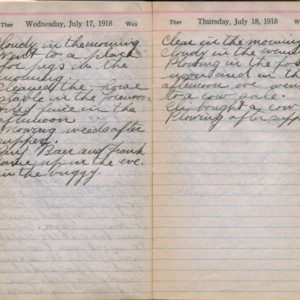 Ther Wednesday, July 17, 1918 Wea
Cloudy in the morning
Went to a place
for pigs in the
morning.
Cleaned the horse
in the forenoon
in the
afternoon
Mowing weeds after
supper.
Baer and Frank
came up in the eve.
in the buggy.
Ther Thursday, July 18, 1918 Wea
Clear in the morning
Cloudy in the
Plowing in the fore
noon and in the
afternoon we went
to a cow sale.
Eli bought a cow
Plowing after supper